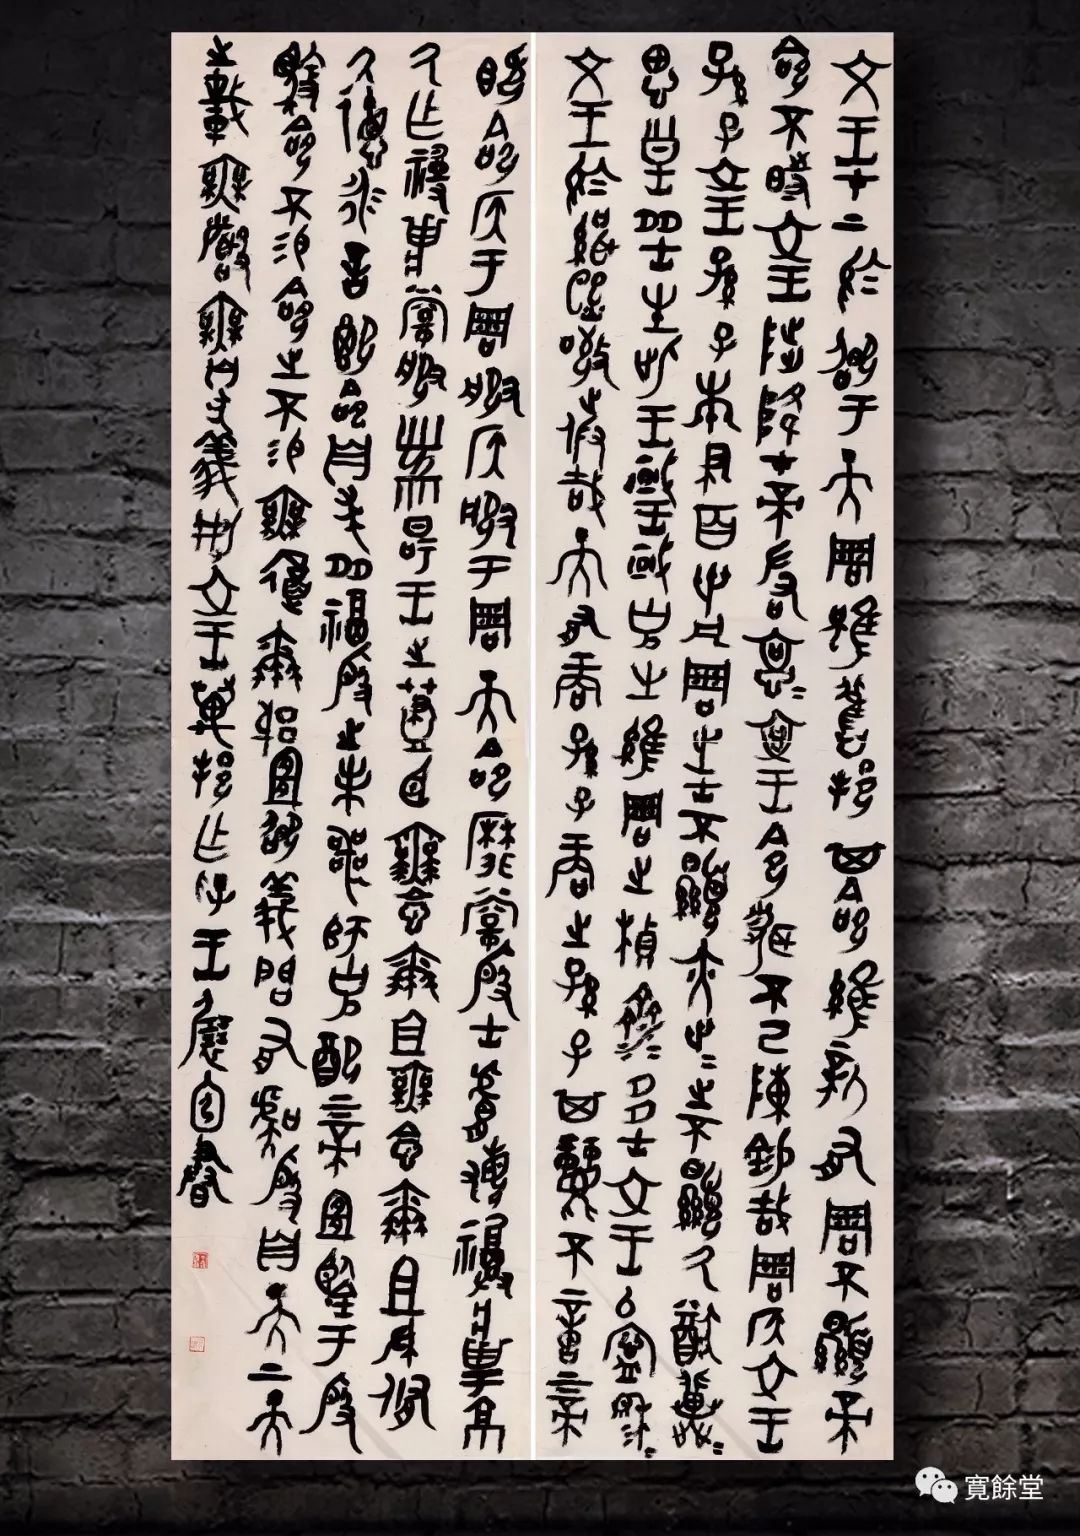 文王才上於昭于天周雖舊邦其命維新有周不顯帝
命不時文王陟降才帝左右亹=文王令聞不已陳錫哉周侯文王
孫子文王孫子本支百世凡周之士不顯亦世=之不顯厥猶翼=
思皇多士生此王國王國克生維周之楨濟=多士文王以寧穆=
文王於緝熙敬止假哉天有商孫子商之孫子其麗不億上帝
既命侯于周服侯服于周天命靡常殷士膚敏祼將于京
厥作祼將常服黼冔王之藎臣無念爾祖無念爾祖聿修
厥德永言配命自求多福殷之未喪師克配上帝宜鑒于殷
駿命不易命之不易無遏爾躬宣昭義問有虞殷自天上天
之載無聲無臭儀刑文王萬邦作孚王慶書
寬餘堂